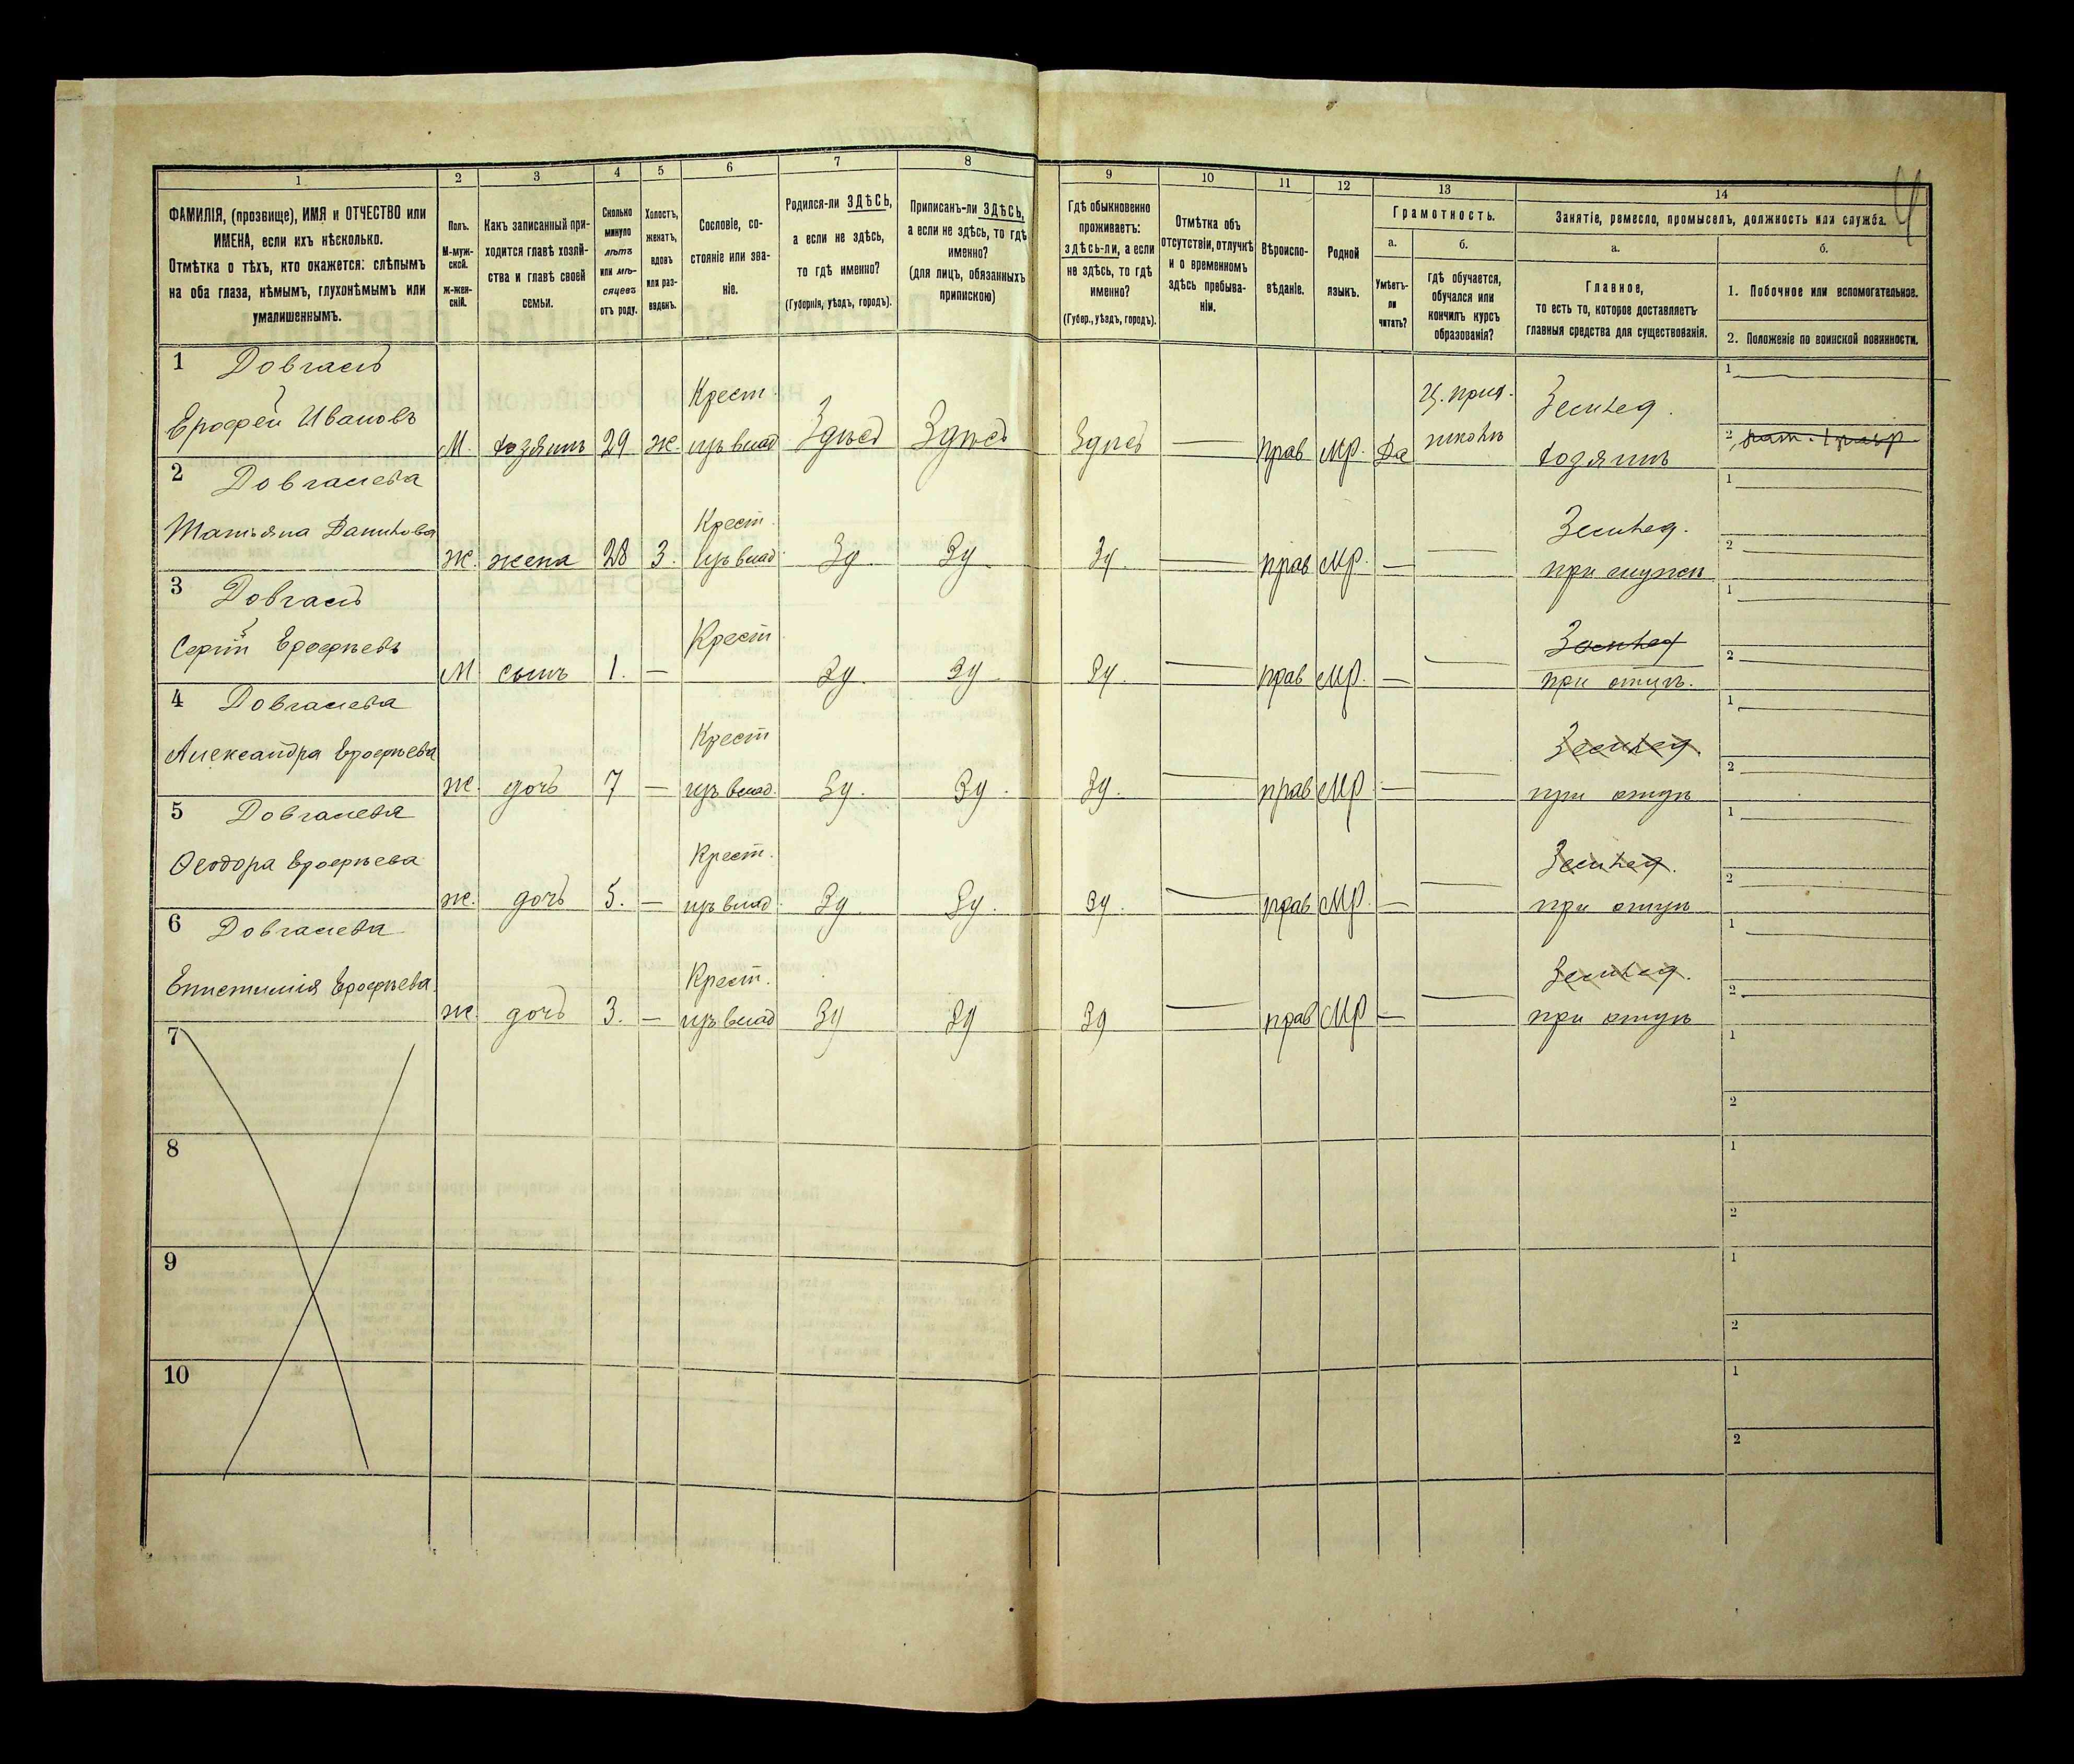 1 2 3 4 5 6 7 8 9 10 11 12 13 14
ФАМИЛІЯ, (прозвище), ИМЯ и ОТЧЕСТВО или
ИМЕНА, если ихъ нѣсколько.
Отмѣтка о тѣхъ, кто окажется: слѣпымъ
на оба глаза, нѣмымъ, глухонѣмымъ или
умалишеннымъ.
Полъ.
М-муж-
ской.
ж-жен-
скій.
Какъ записанный при-
ходится главѣ хозяй-
ства и главѣ своей
семьи.
Сколько
минуло
лѣтъ
или мѣ-
сяцевъ
отъ роду.
Холостъ,
женатъ,
вдовъ
или раз-
веденъ.
Сословіе, со-
стояніе или зва-
ніе.
Родился-ли ЗДѢСЬ,
а если не здѣсь,
то гдѣ именно?
(Губернія, уѣздъ, городъ).
Приписанъ-ли ЗДѢСЬ,
а если не здѣсь, то гдѣ
именно?
(для лицъ, обязанныхъ
припискою)
Гдѣ обыкновенно
проживаетъ:
здѣсь-ли, а если
не здѣсь, то гдѣ
именно?
(Губер., уѣздъ, городъ).
Отмѣтка объ
отсутствіи, отлучкѣ
и о временномъ
здѣсь пребыва-
ніи.
Вѣроиспо-
вѣданіе.
Родной
языкъ.
Грамотность.
а.
Умѣетъ-
ли
читать?
б.
Гдѣ обучается,
обучался или
кончилъ курсъ
образованія?
Занятіе, ремесло, промыселъ, должность или служба.
а.
Главное,
то есть то, которое доставляетъ
главныя средства для существованія.
б.
1. Побочное или вспомогательное.
2. Положеніе по воинской повинности.
1 Довгаль Крест Ц. прих. Землед. 1
Ерофей Ивановъ М. хозяинъ 29 ж. изъ влад Здѣсь Здѣсь Здѣсь — прав МР. Да школѣ хозяинъ 2
2 Довгалева Крест. Землед. 1
Татьяна Данилова ж. жена 28 З. изъ влад. Зд. Зд. Зд. — прав МР. — — при мужѣ 2 —
3 Довгаль Крест Землед 1 —
Сергій Ерофѣевъ М сынъ 1. — Зд. Зд Зд. — прав МР. — — при отцѣ. 2 —
4 Довгалева Крест Землед. 1 —
Александра Ерофѣева ж. дочь 7 — изъ влад. Зд. Зд. Зд. — прав МР — — при отцѣ 2 —
5 Довгалева Крест. Землед. 1 —
Ѳеодора Ерофѣева ж. дочь 5. — изъ влад. Зд. Зд. Зд. — прав МР. — — при отцѣ 2 —
6 Довгалева Крест. Землед. 1 —
Епистимія Ерофѣева. ж. дочь 3. — изъ влад Зд Зд Зд — прав МР — — при отцѣ 2 —
7 1
2
8 1
2
9 1
2
10 1
2